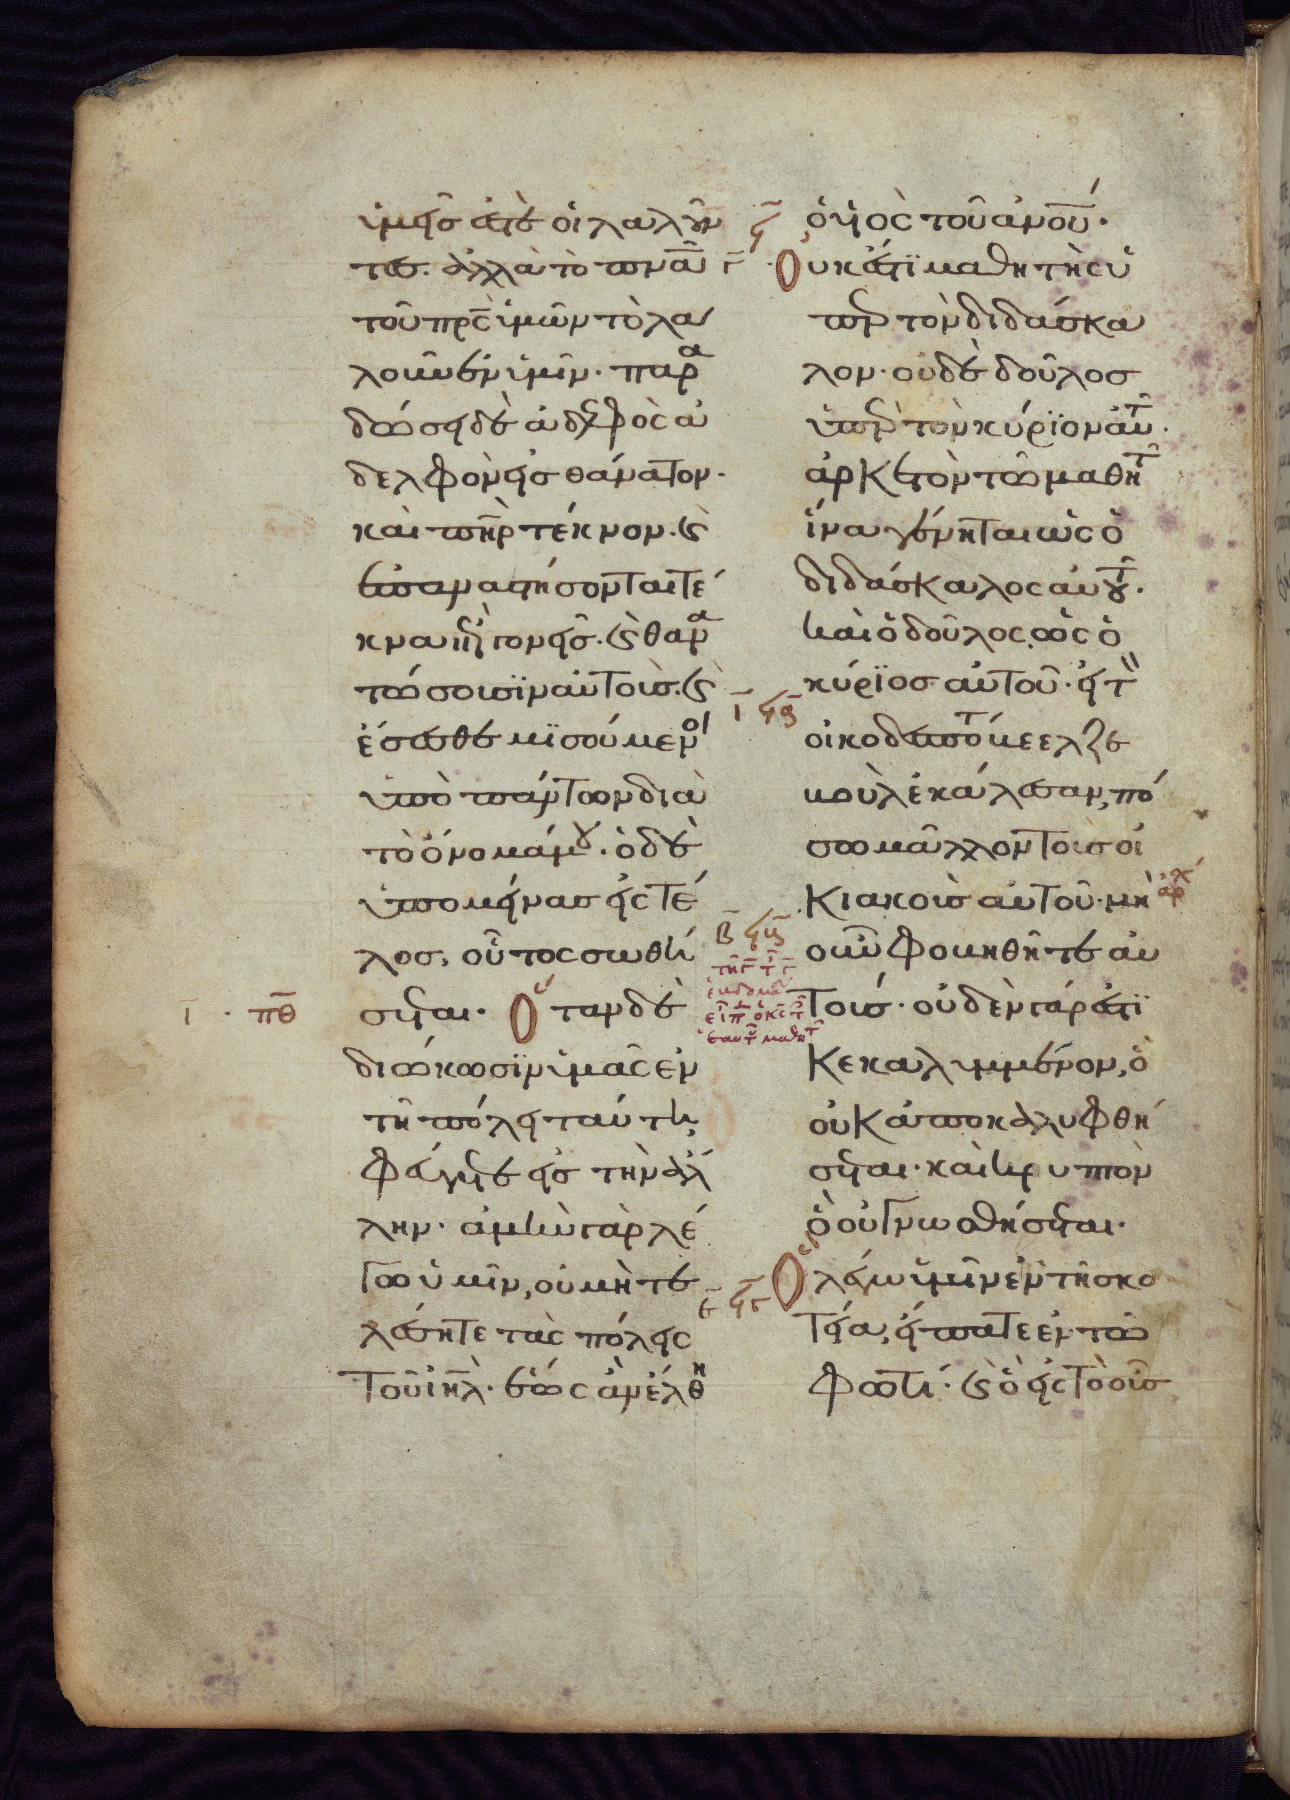 ὑμεῖς ἐστὲ οἱ λαλοῦν
τες. ἀλλὰ τὸ πνᾶ
τοῦ πρς ὑμῶν τὸ λα
λοῦν ἐν ὑμῖν· παρα
δώσει δὲ ἀδελφὸς ἀ
δελφὸν εἰς θάνατον·
καὶ πηρ τέκνον. ϗ
ἐπαναστήσονται τέ
κνα ἐπὶ γονεῖς. ϗ θανα
τώσουσϊν αὐτούς. ϗ
ἔσεσθε μϊσούμενοι
ὑπὸ πάντων διὰ
τὸ ὄνομά μου. ὁ δὲ
ὑπομείνας εἰς τέ
λος, οὗτος σωθή
σεται. Ὅταν δὲ
ι πθ
διώκωσϊν ὑμᾶς ἐν
τῇ πόλει ταύτῃ,
φεύγετε εἰς τὴν ἄλ
λην. ἀμὴν γὰρ λέ
γω ὑμῖν, οὐ μὴ τε
λέσητε τὰς πόλεις
τοῦ ιηλ. ἕως ἂν ἔλθη
ϟ
γ
ὁ υἱὸς τοῦ ανου.
Οὐκ ἔστϊ μαθητὴς ὑ
πὲρ τὸν διδάσκα
λον. οὐδὲ δοῦλος
ὑπὲρ τὸν κύρϊον αὐτ.
ἀρκετὸν τῶ μαθητ
ἵνα γένηται ὡς ὁ
διδάσκαλος αὐτοῦ.
καὶ ὁ δοῦλος, ὡς ὁ
κύρϊος αὐτοῦ. εἰ τ
ι ϟα
οἰκοδεσπότ βεελζε
βοὺλ ἐκάλεσαν, πό
σω μᾶλλον τοὺς οἰ
κιακοὺς αὐτοῦ. μὴ
ἀρχ
οὖν φοβηθῆτε αὐ
β ϟβ
τούς. οὐδὲν γάρ ἐστϊ
κεκαλυμμένον, ὃ
οὐκ ἀποκαλυφθή
σεται. καὶ κρυπτὸν
ὃ οὐ γνωσθήσεται.
Ὃ λέγω ὑμῖν ἐν τῆ σκο
ε ϟγ
τία, εἴπατε ἐν τῶ
φωτί. ϗ ὃ εἰς τὸ οὖς